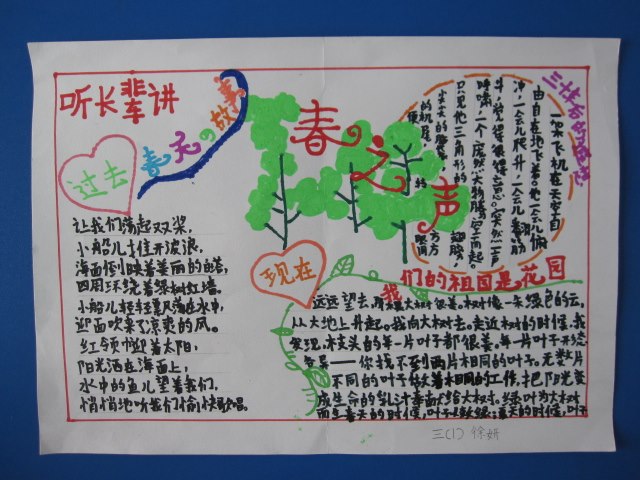 听长辈讲
春天的故事
春之声
三十年后的变迁
过去
让我们荡起双桨,
小船儿推开波浪,
海面倒映着美丽的白塔,
四周环绕着绿树红墙。
小船儿轻轻飘荡在水中,
迎面吹来了凉爽的风。
红领巾迎着太阳,
阳光洒在海面上,
水中的鱼儿望着我们,
悄悄地听我们愉快歌唱。
一架飞机在天空自
由自在地飞着。他一会儿俯
冲,一会儿爬升,一会儿翻筋
只见他三角形的翅膀,
尖尖的
的机尾,
现在
我们的祖国是花园
远远望去,那棵大树很美。树像一朵绿色的云,
从大地上升起。我向大树走去。走近树的时候,我
发现,枝头的每一片叶子都很美。每一片叶子
你找不到两片相同的叶子。无数片
不同的叶子做着相同的工作,把阳光变
成生命的乳汁奉献给大树。绿叶为大树
而生。春天的时候,叶子
三(1) 徐妍